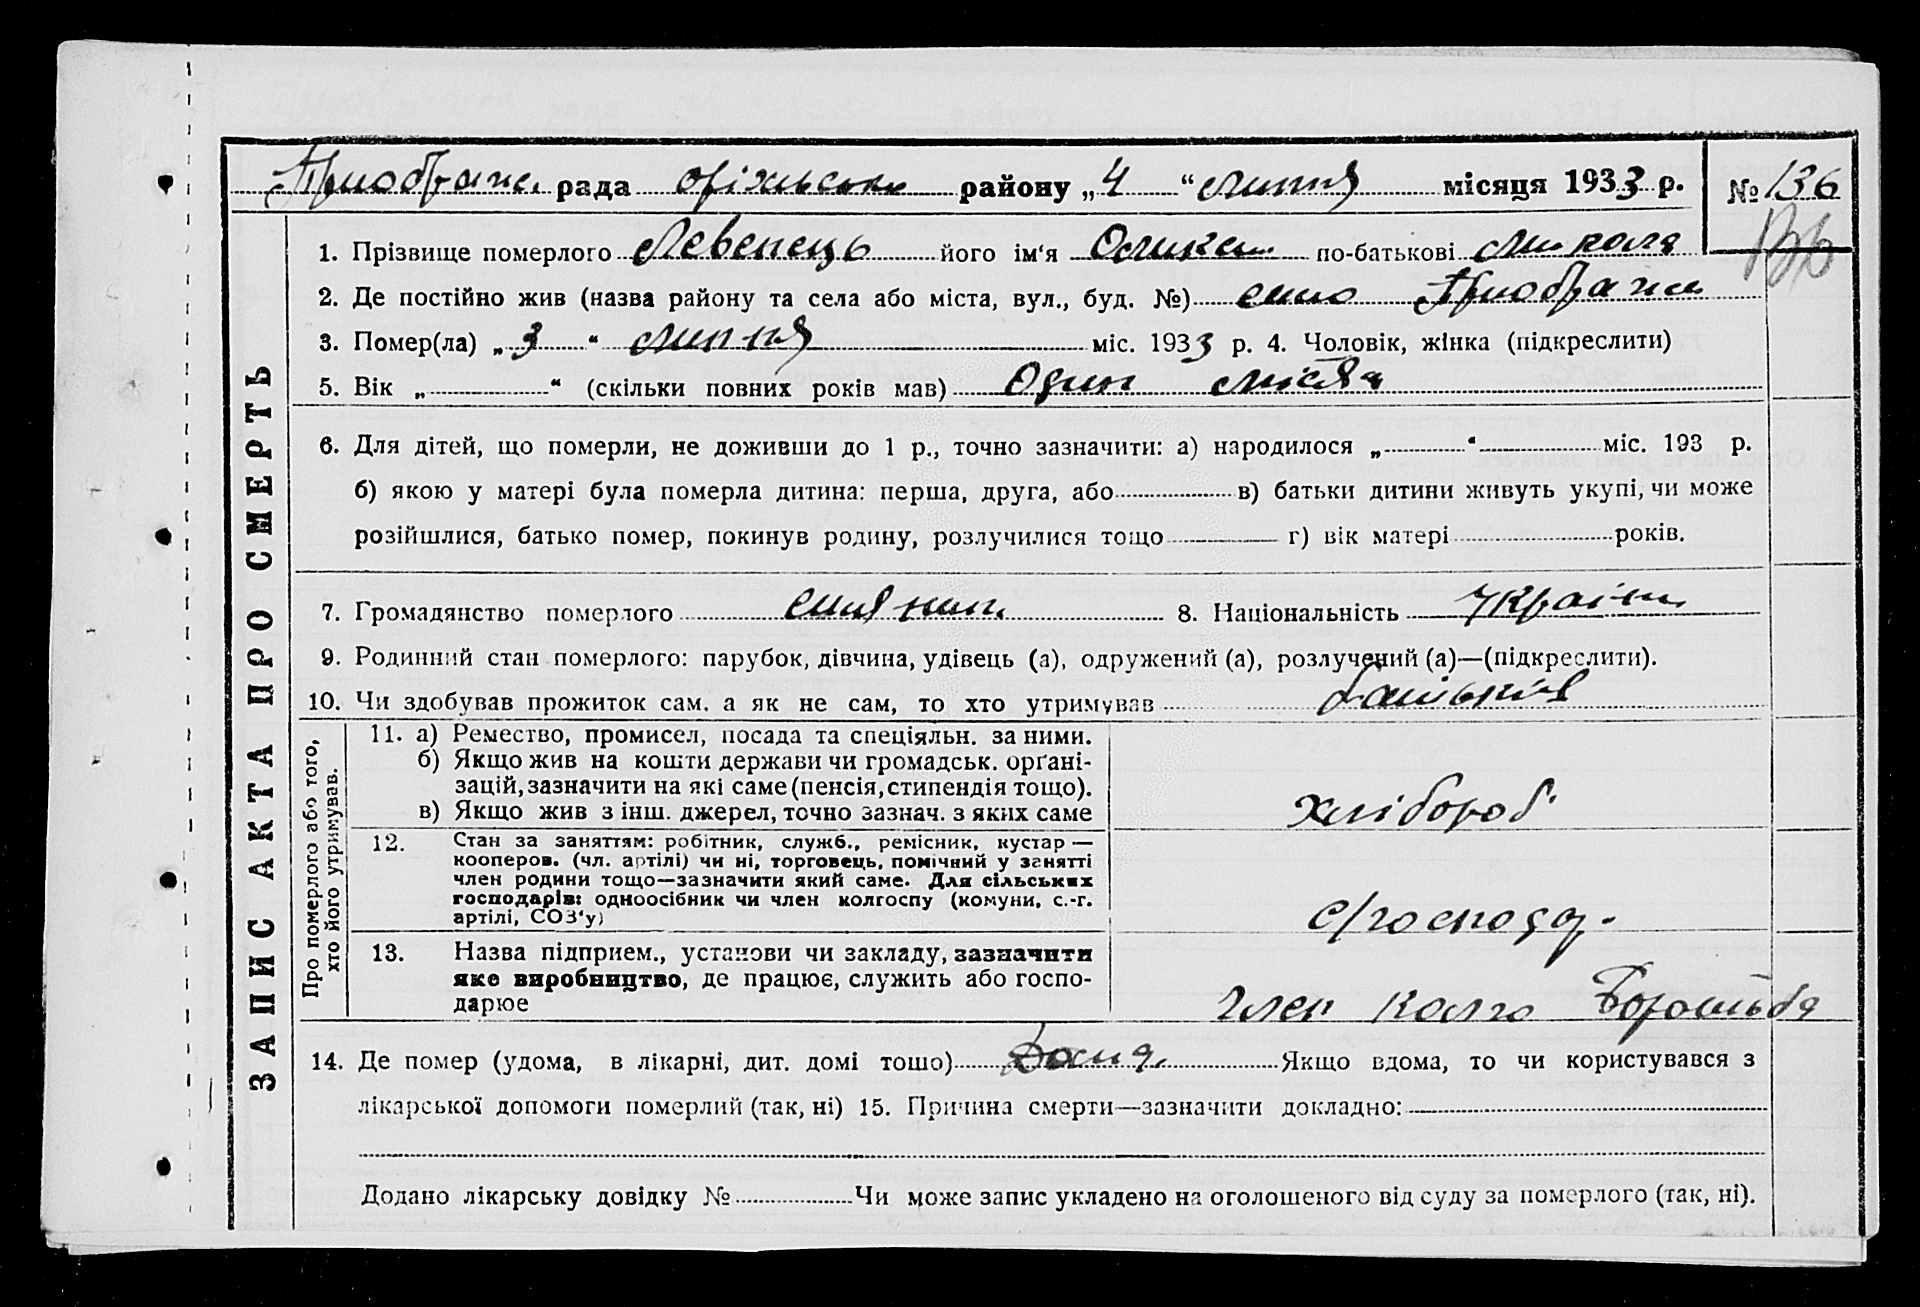 Приображе. рада оріхівсько району „4“ липня місяця 1933 р. № 136
136
1. Прізвище померлого Левепець його ім'я по-батькові Микола
2. Де постійно жив (назва району та села або міста, вул., буд. №) село Приображе
3. Помер(ла) „3“ липня міс. 1933 р. 4. Чоловік, жінка (підкреслити)
5. Вік „ “ (скільки повних років мав) Один місяц
6. Для дітей, що померли, не доживши до 1 р., точно зазначити: а) народилося „ “ міс. 193 р.
б) якою у матері була померла дитина: перша, друга, або в) батьки дитини живуть укупі, чи може
розійшлися, батько помер, покинув родину, розлучилися тощо г) вік матері років.
7. Громадянство померлого селянин 8. Національність україн
9. Родинний стан померлого: парубок, дівчина, удівець (а), одружений (а), розлучений (а)—(підкреслити).
10. Чи здобував прожиток сам, а як не сам, то хто утримував батьків
Про померлого або того, хто його утримував.
11. а) Ремество, промисел, посада та спеціяльн. за ними.
б) Якщо жив на кошти держави чи громадськ. орґані-
зацій, зазначити на які саме (пенсія, стипендія тощо).
в) Якщо жив з інш. джерел, точно зазнач. з яких саме
хлібороб
12. Стан за заняттям: робітник, служб., ремісник, кустар —
кооперов. (чл. артілі) чи ні, торговець, помічний у занятті
член родини тощо—зазначити який саме. Для сільських
господарів: одноосібник чи член колгоспу (комуни, с.-г.
артілі, СОЗ'у)
с/господар.
13. Назва підприєм., установи чи закладу, зазначити
яке виробництво, де працює, служить або госпо-
дарює
член колго Боротьба
14. Де помер (удома, в лікарні, дит. домі тощо) Дома. Якщо вдома, то чи користувався з
лікарської допомоги померлий (так, ні) 15. Причина смерти—зазначити докладно:
Додано лікарську довідку № Чи може запис укладено на оголошеного від суду за померлого (так, ні).
ЗАПИС АКТА ПРО СМЕРТЬ